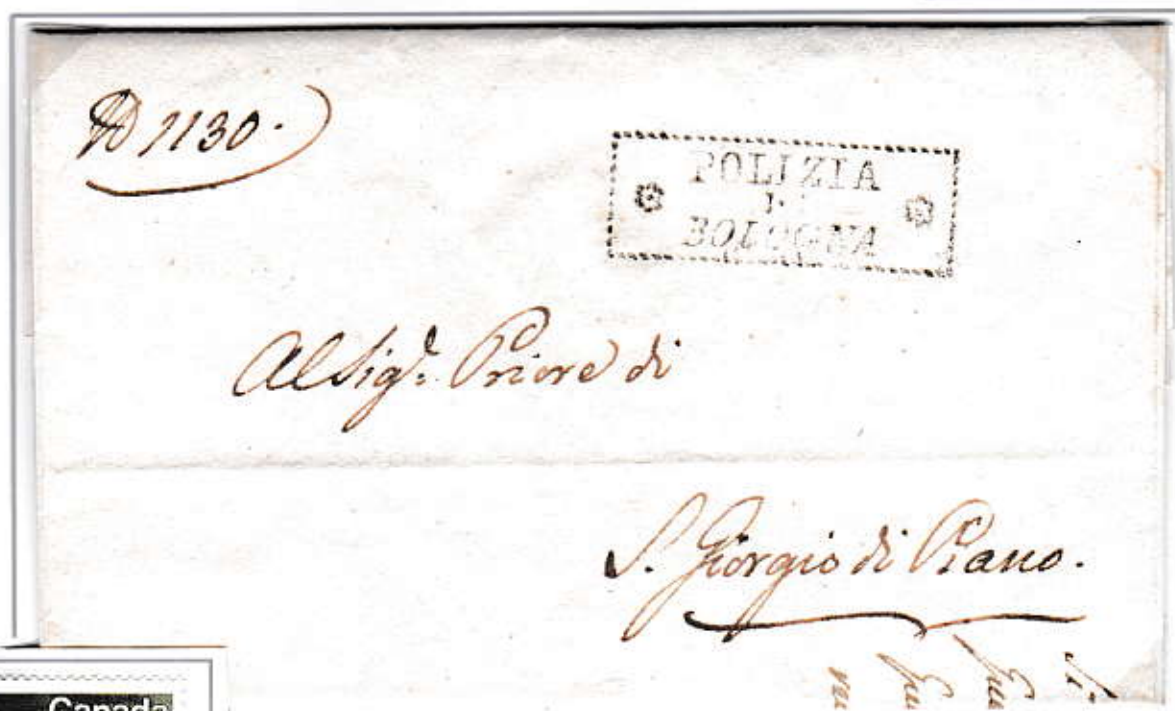 N 1130.
POLIZIA
DI
BOLOGNA
Al Sig.r Priore di
S. Giorgio di Piano.
Canada